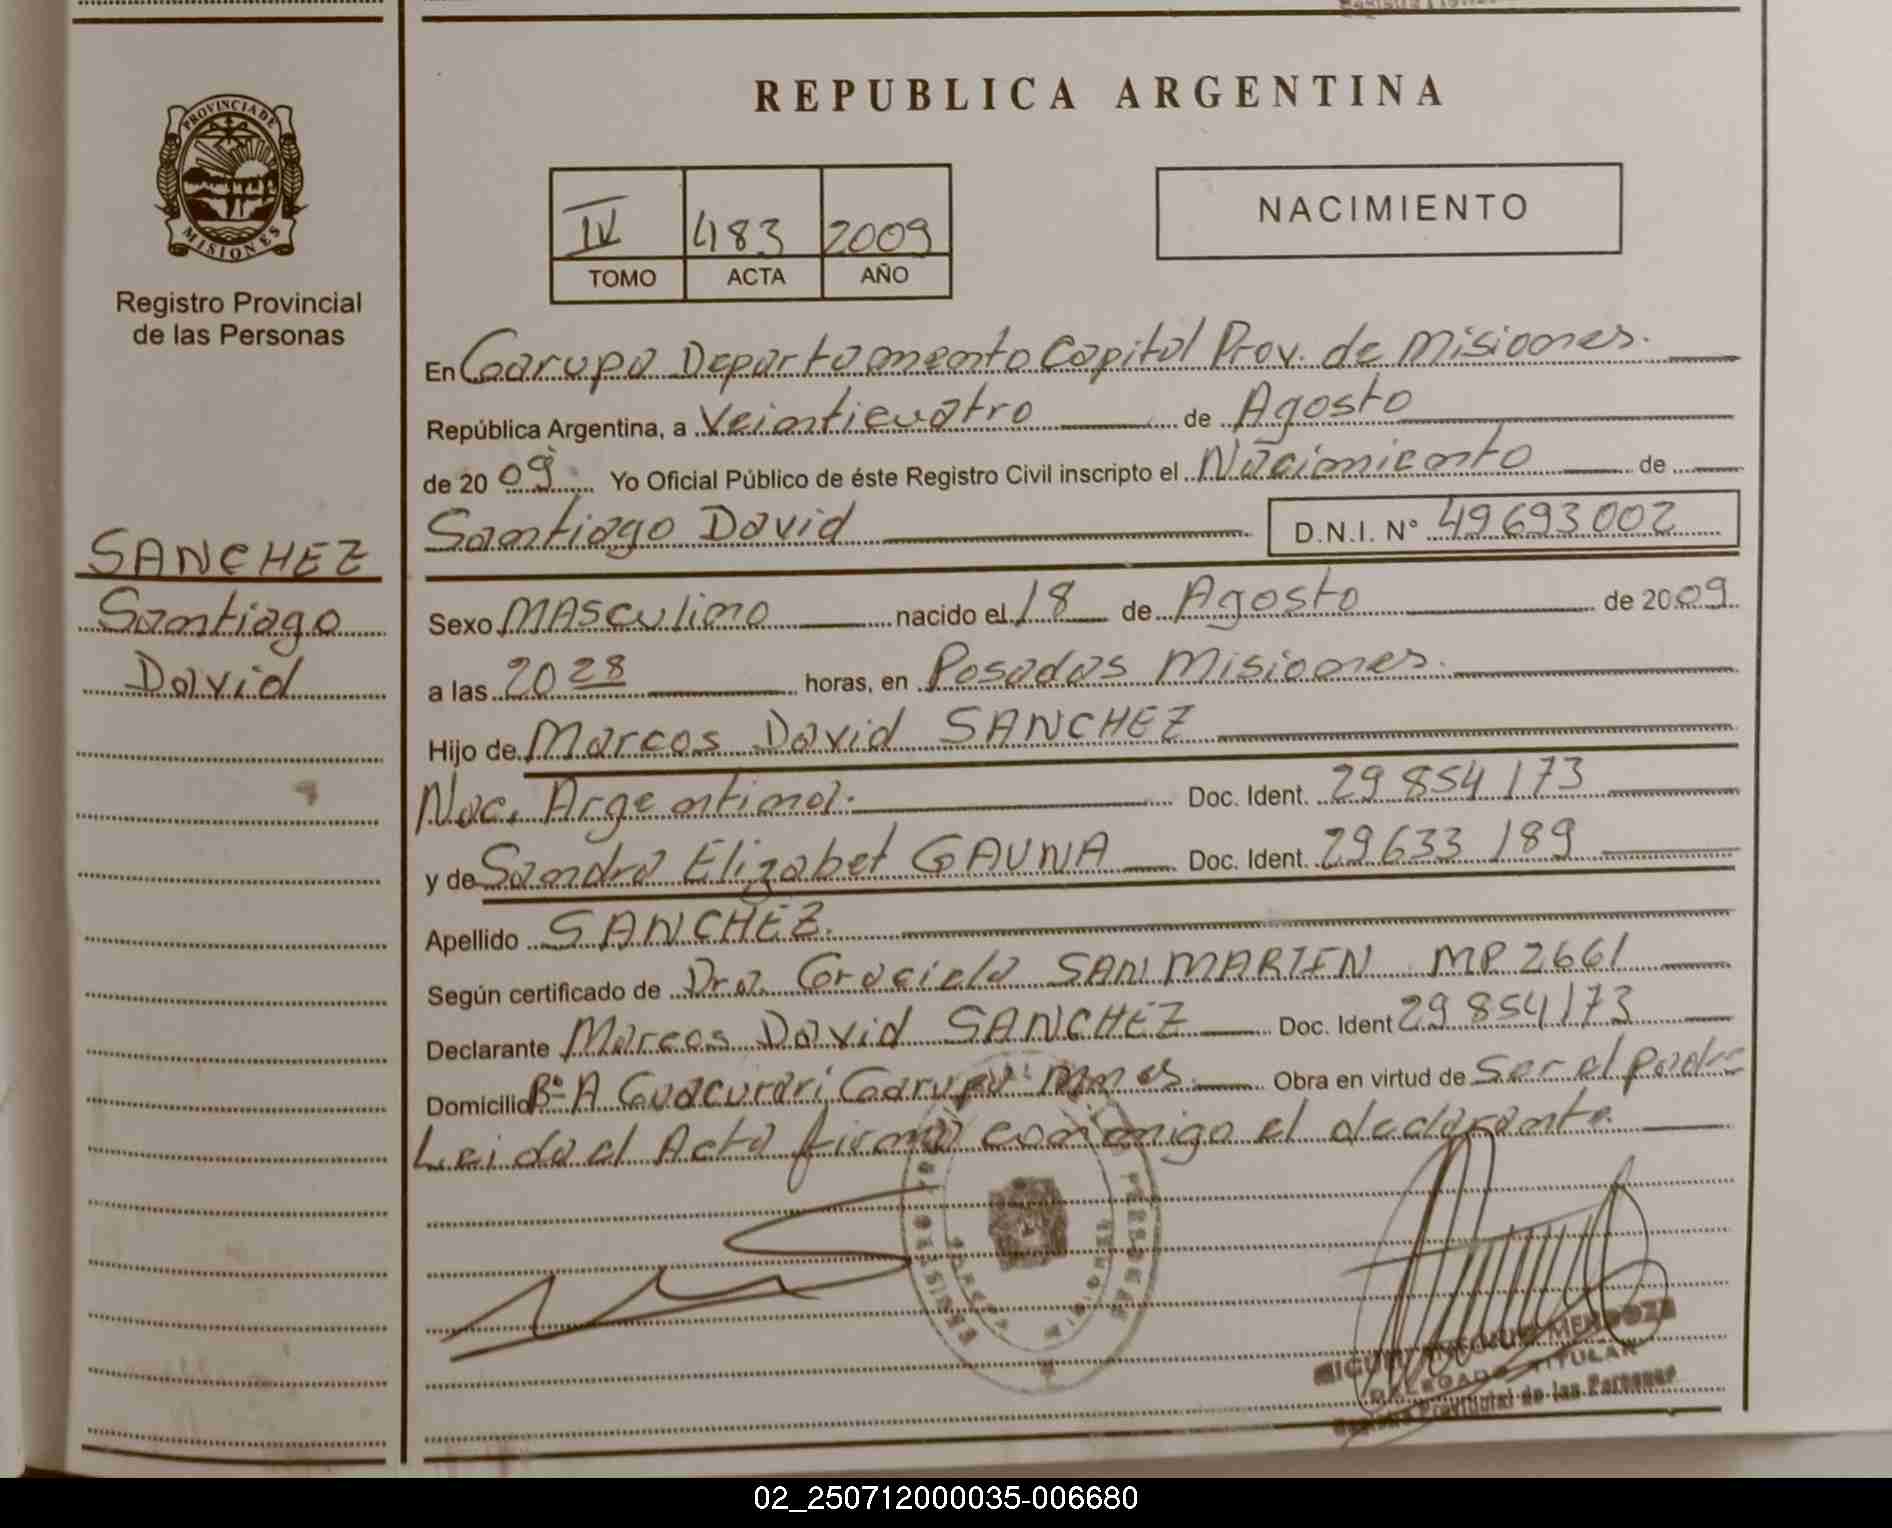 PROVINCIA DE
MISIONES
Registro Provincial
de las Personas
SANCHEZ
Santiago
David
REPUBLICA ARGENTINA
IV 483 2009
TOMO ACTA AÑO
NACIMIENTO
En Garupa Departamento Capital Prov. de Misiones.
República Argentina, a Veinticuatro de Agosto
de 2009. Yo Oficial Público de éste Registro Civil inscripto el Nacimiento de
Santiago David D.N.I. N° 49693002
Sexo Masculino nacido el 18 de Agosto de 2009
a las 20 28 horas, en Posadas Misiones.
Hijo de Marcos David SANCHEZ
Nac. Argentina. Doc. Ident. 29 854 173
y de Sandra Elizabet GAUNA Doc. Ident. 29633 189
Apellido SANCHEZ.
Según certificado de Dra. Graciela SAN MARTIN MP 2661
Declarante Marcos David SANCHEZ Doc. Ident 29 854 173
Domicilio B° A Guacurari Garupa Mnes. Obra en virtud de Ser el padre
Leida el Acta firma conmigo el declarante.
MIGUEL ANTONIO MENDOZA
DELEGADO TITULAR
Registro Provincial de las Personas
02_250712000035-006680